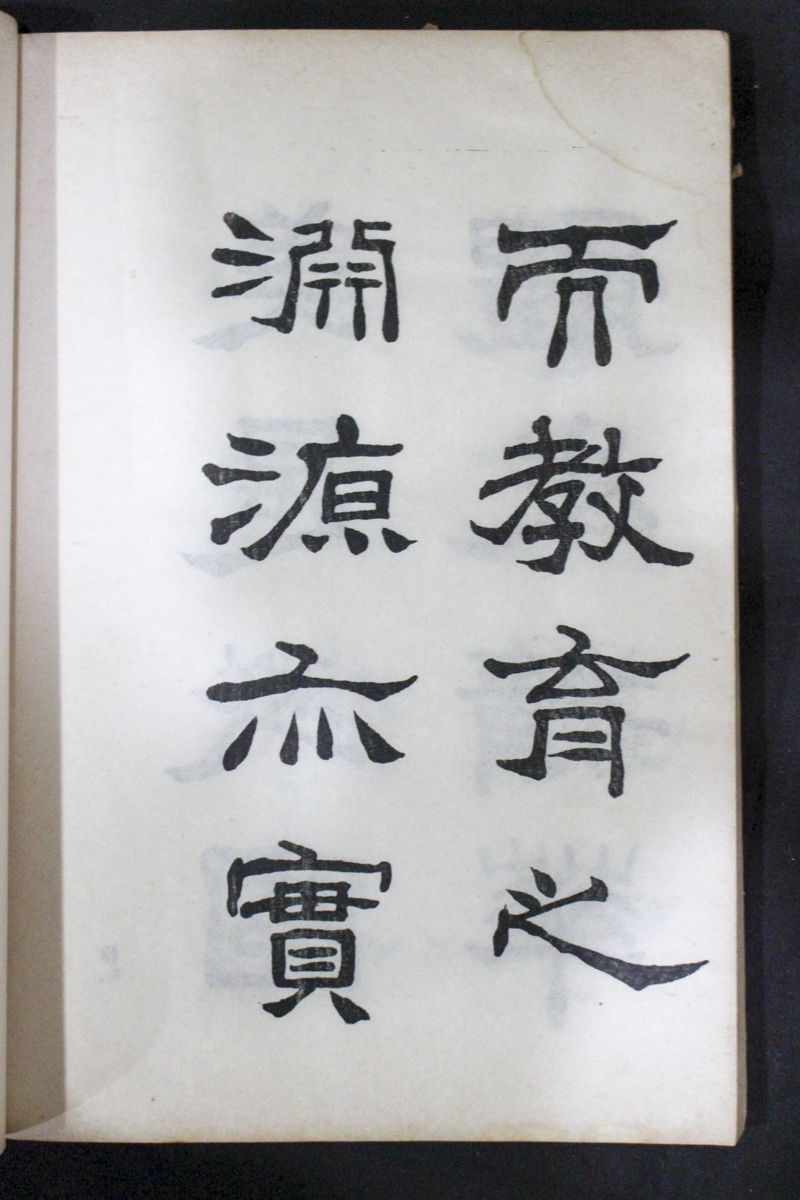 而教育之
淵源亦實